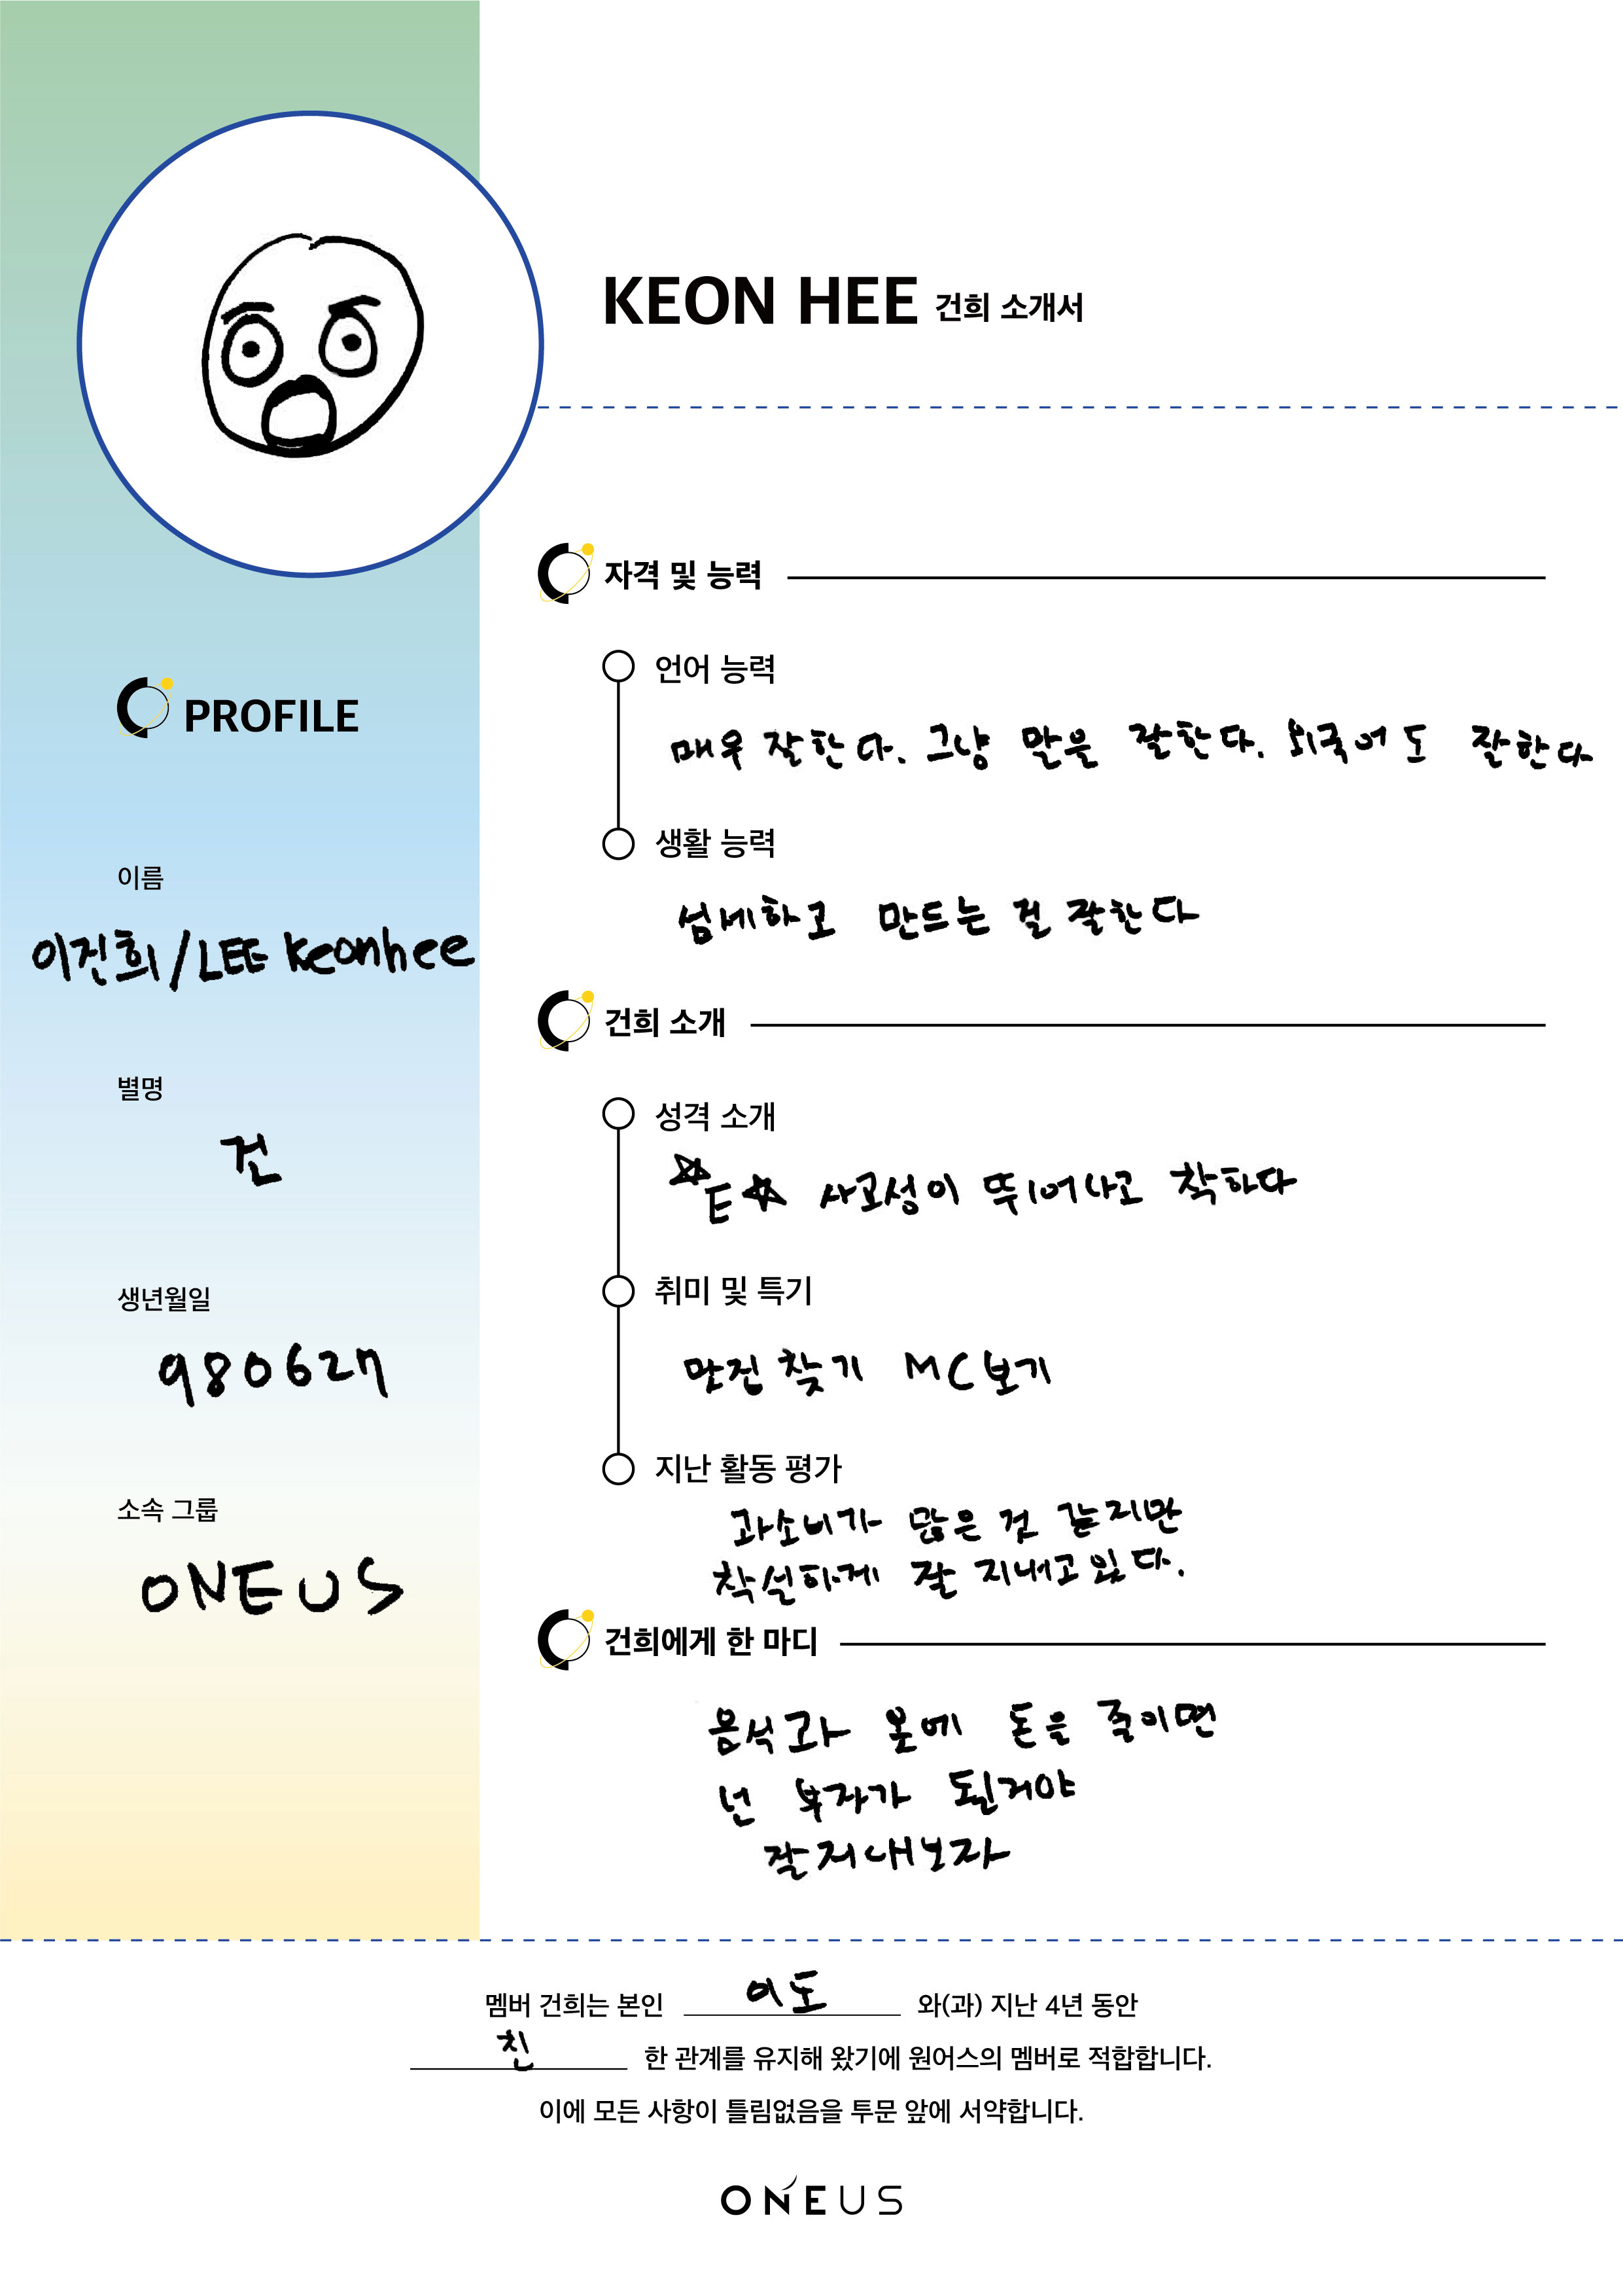 KEON HEE 건희 소개서
PROFILE
이름
이건희/LEE Keonhee
별명
건
생년월일
980627
소속 그룹
ONEUS
자격 및 능력
언어 능력
매우 잘한다. 그냥 말을 잘한다. 외국어도 잘한다
생활 능력
섬세하고 만드는 걸 잘한다
건희 소개
성격 소개
☆E☆ 사교성이 뛰어나고 착하다
취미 및 특기
맛집 찾기 MC보기
지난 활동 평가
과소비가 많은 것 같지만
착실하게 잘 지내고있다.
건희에게 한 마디
음식과 옷에 돈을 줄이면
넌 부자가 될거야
잘지내보자
멤버 건희는 본인 이도 와(과) 지난 4년 동안
친 한 관계를 유지해 왔기에 원어스의 멤버로 적합합니다.
이에 모든 사항이 틀림없음을 투문 앞에 서약합니다.
ONEUS